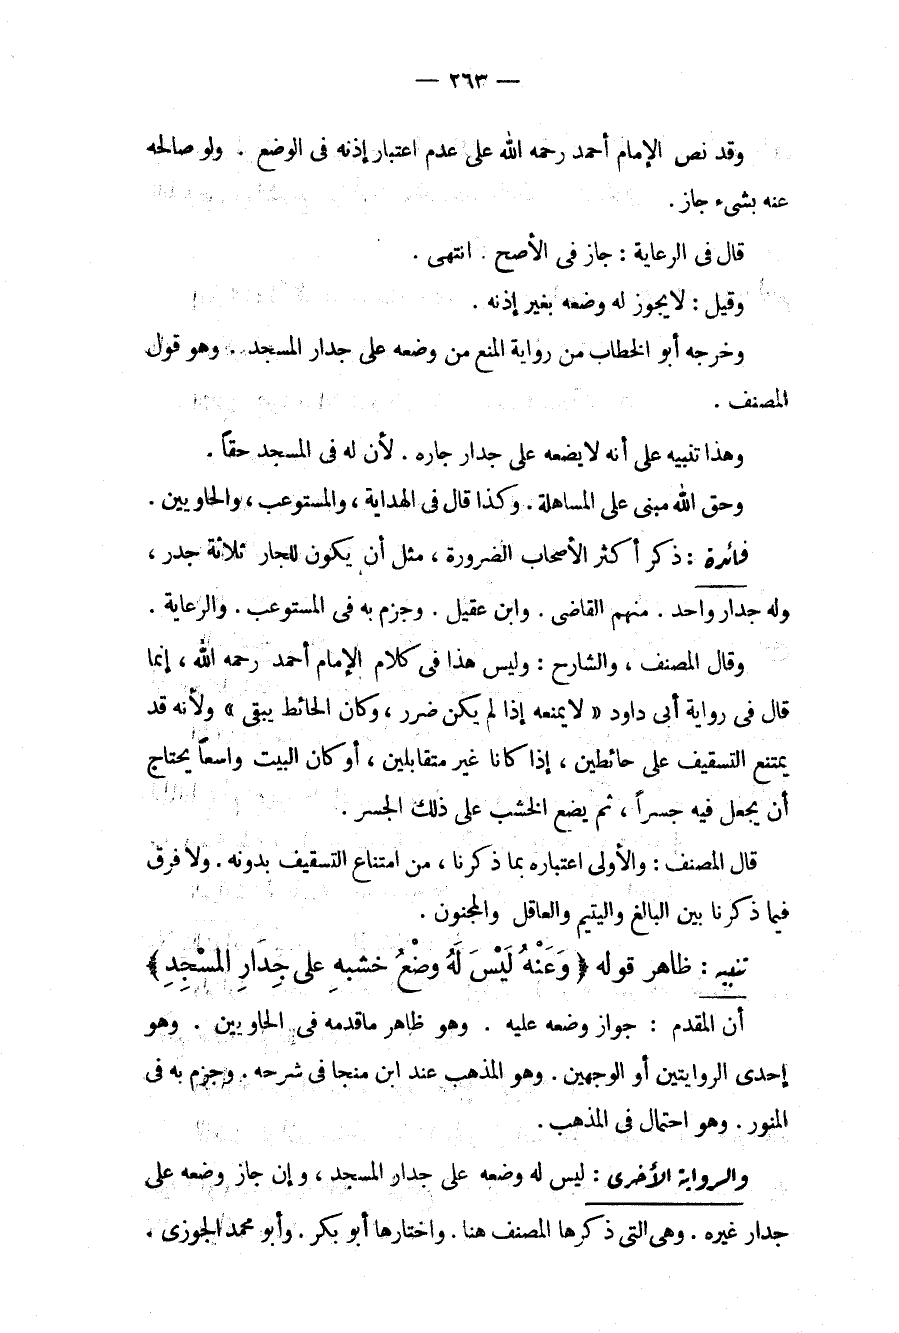 — ٢٦٣ —
وقد نص الإمام أحمد رحمه الله على عدم اعتبار إذنه فى الوضع . ولو صالحه
عنه بشىء جاز .
قال فى الرعاية : جاز فى الأصح . انتهى .
وقيل : لايجوز له وضعه بغير إذنه .
وخرجه أبو الخطاب من رواية المنع من وضعه على جدار المسجد . وهو قول
المصنف .
وهذا تنبيه على أنه لايضعه على جدار جاره . لأن له فى المسجد حقاً .
وحق الله مبنى على المساهلة . وكذا قال فى الهداية ، والمستوعب ، والحاويين .
فائدة : ذكر أكثر الأصحاب الضرورة ، مثل أن يكون للجار ثلاثة جدر ،
وله جدار واحد . منهم القاضى . وابن عقيل . وجزم به فى المستوعب . والرعاية .
وقال المصنف ، والشارح : وليس هذا فى كلام الإمام أحمد رحمه الله ، إنما
قال فى رواية أبى داود « لايمنعه إذا لم يكن ضرر ، وكان الحائط يبقى » ولأنه قد
يمتنع التسقيف على حائطين ، إذا كانا غير متقابلين ، أو كان البيت واسعاً يحتاج
أن يجعل فيه جسراً ، ثم يضع الخشب على ذلك الجسر .
قال المصنف : والأولى اعتباره بما ذكرنا ، من امتناع التسقيف بدونه . ولا فرق
فيما ذكرنا بين البالغ واليتيم والعاقل والمجنون .
تنبيه : ظاهر قوله ﴿ وَعَنْهُ لَيْسَ لَهُ وضْعُ خشبهِ على جِدَارِ المسْجِدِ ﴾
أن المقدم : جواز وضعه عليه . وهو ظاهر ماقدمه فى الحاويين . وهو
إحدى الروايتين أو الوجهين . وهو المذهب عند ابن منجا فى شرحه . وجزم به فى
المنور . وهو احتمال فى المذهب .
والرواية الأخرى : ليس له وضعه على جدار المسجد ، وإن جاز وضعه على
جدار غيره . وهى التى ذكرها المصنف هنا . واختارها أبو بكر . وأبو محمد الجوزى .